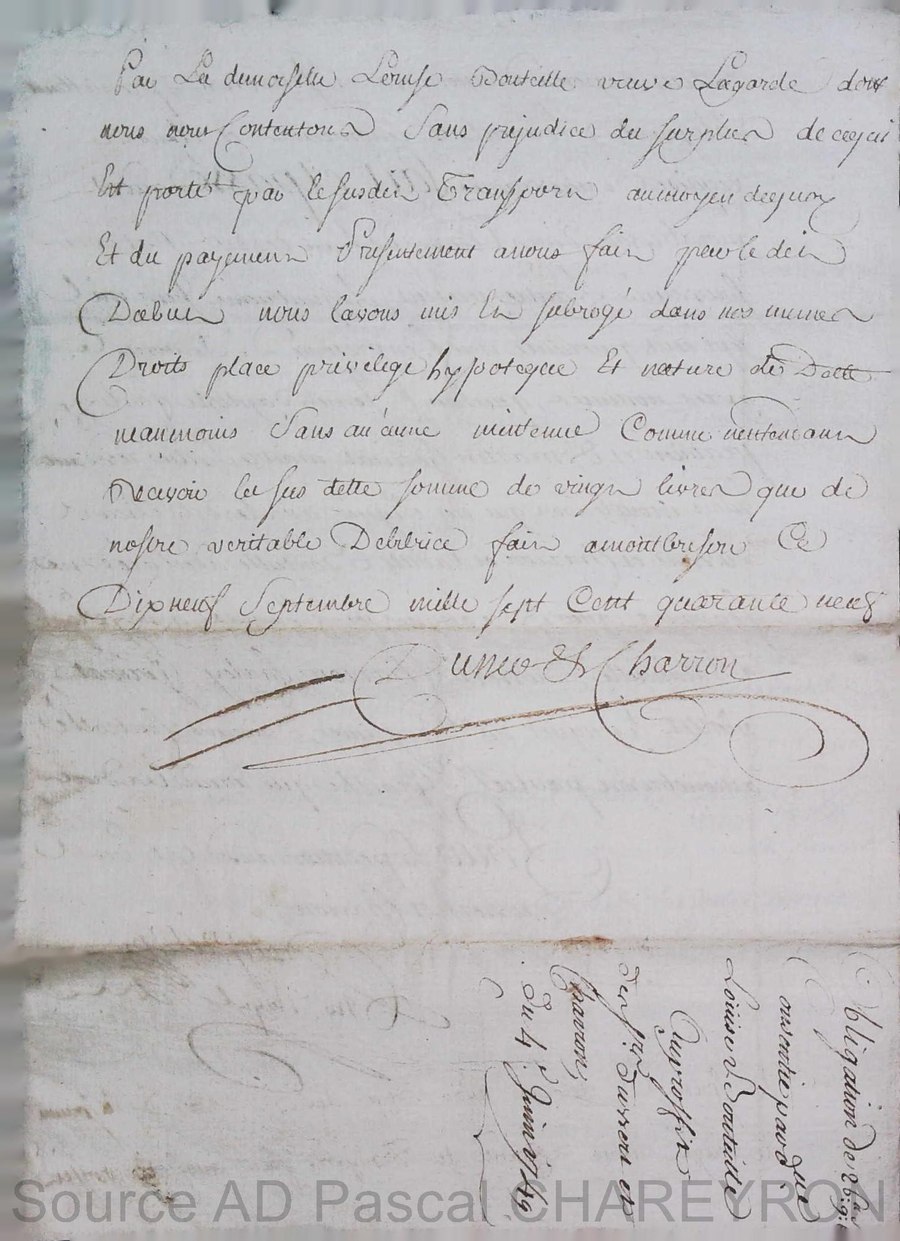 Par La demoiselle Louise Bouteille veuve Lagarde dont
nous nous Contentons Sans prejudice du surplus de ce qui
Est porté par le susdit Transport au moyen de quoy
Et du payement Presentement a nous fait par le dit
nous lavons mis Et subrogé dans nos mêmes
Droits place privilege hypoteque Et nature de Dette
neanmoins Sans aucune
Recevoir la sus dette somme de vingt livres que de
nostre veritable Debitrice fait a montbrison Ce
Dixneuf Septembre mille sept Cent quarante neuf
Charron
Obligation de 26
consentie par dlle
Louise Bouteille
Au proffit
des srs et
Charron,
du 4 Juin 1749
Source AD Pascal CHAREYRON